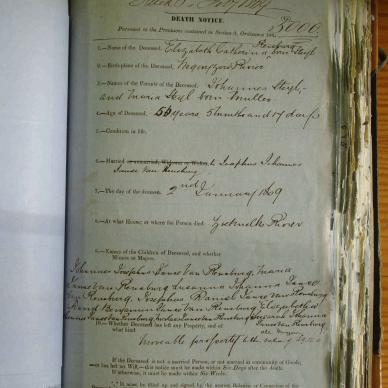 Filed 5 Feby 1869
£3000.
DEATH NOTICE.
Pursuant to the Provisions contained in Section 9, Ordinance 104,
Rensburg
1.—Name of the Deceased, Elizabeth Catharina born Steyl
2.—Birthplace of the Deceased,
3.—Names of the Parents of the Deceased, Johannes Steyl
and Maria Steyl born Muller
4.—Age of Deceased, 56 years 5 months and 17 days
5.—Condition in life.
6.—Married or unmarried, Widower or Widow, to Josephus Johannes
Janse Van Rensburg
7.—The day of the decease, 2nd January 1869
8.—At what House, or where the Person died. River
9.—Names of the Children of Deceased, and whether
Minors or Majors.
Johannes Josephus Janse Van Rensburg, Maria
Janse Van Rensburg Susanna Johanna Janse
Van Rensburg, Josephus Daniel Janse van Rensburg
David Benjamin Janse Van Rensburg Elizabeth
Janse Van Rensburg Janse van Rensburg Johanna
Janse Van Rensburg
all Majors
10.—Whether Deceased has left any Property, and of
what kind
Movable property to the value of
If the Deceased is not a married Person, or not married in community of Goods,
or has left no Will,—this notice must be made within Six Days after the Decease.
If otherwise, it must be made within Six Weeks.
It must be filled up and signed by the nearest Relative or Connection of the